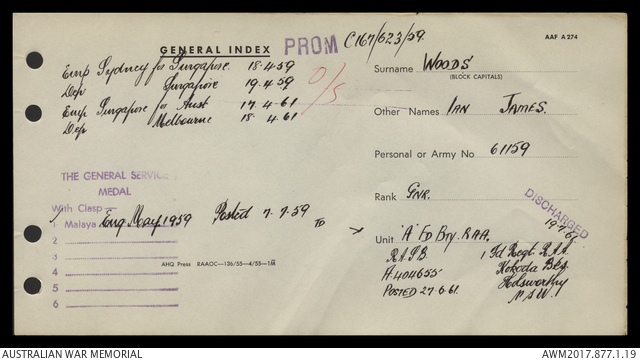 AAF A 274
GENERAL INDEX PROM C167/623/59
Emp Sydney for Singapore. 18.4.59
Dep Singapore 19.4.59
Emp Singapore for Aust 17.4.61
Dep Melbourne 18.4.61
O/S
Surname WOODS
(BLOCK CAPITALS)
Other Names IAN JAMES.
Personal or Army No 61159
Rank GNR.
DISCHARGED
Unit 'A' FD BTY. RAA.
THE GENERAL SERVICE
MEDAL
With Clasp
1 Malaya Enq May 1959 Posted 7.7.59 TO
2
3
4
5
6
AHQ Press RAAOC—136/55—4/55—1G
A404655
POSTED 27.6.61
1 Fd Regt. R.A.A.
Kokoda Bks.
Holsworthy
N.S.W.
AUSTRALIAN WAR MEMORIAL
AWM2017.877.1.19